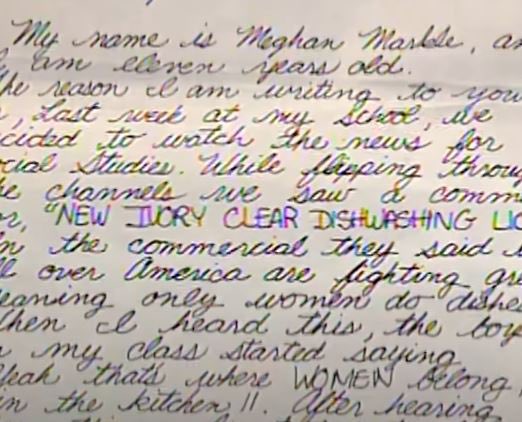 My name is Meghan Markle, an
I am eleven years old.
he reason I am writing to you
, Last week at my School, we
cided to watch the news for
ocial Studies. While flipping throug
he channels we saw a comm
or, "NEW IVORY CLEAR DISHWASHING LIQ
In the commercial they said w
ll over America are fighting gre
eaning only women do dishe
When I heard this, the boy
n my class started saying
Yeah thats where WOMEN belong,
in the kitchen!!. After hearing